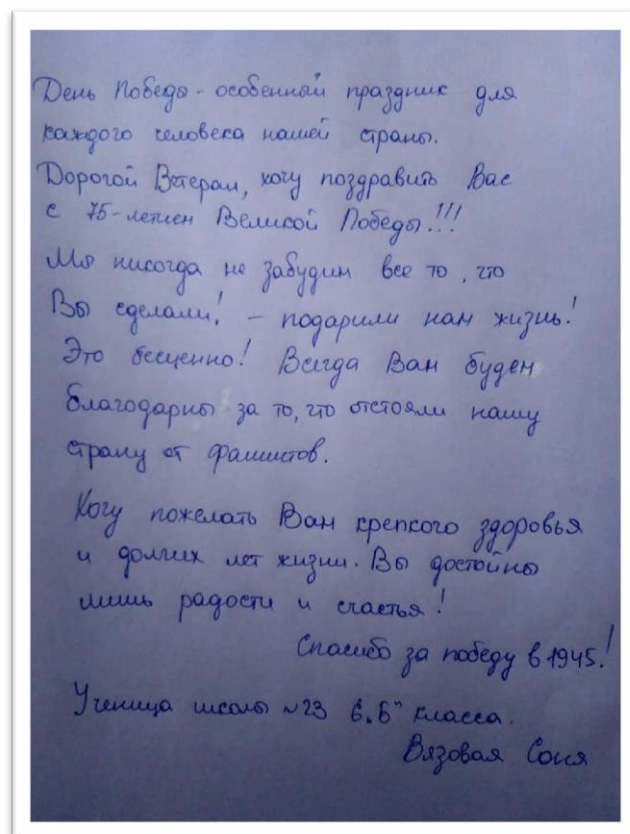 День Победы - особенный праздник для
каждого человека нашей страны.
Дорогой Ветеран, хочу поздравить Вас
с 75-летием Великой Победы!!!
Мы никогда не забудим все то, что
Вы сделали! - подарили нам жизнь!
Это бесценно! Всегда Вам будем
благодарны за то, что отстояли нашу
страну от фашистов.
Хочу пожелать Вам крепкого здоровья
и долгих лет жизни. Вы достойны
лишь радости и счастья!
Спасибо за победу в 1945!
Ученица школы №23 6„Б" класса.
Вязовая Соня